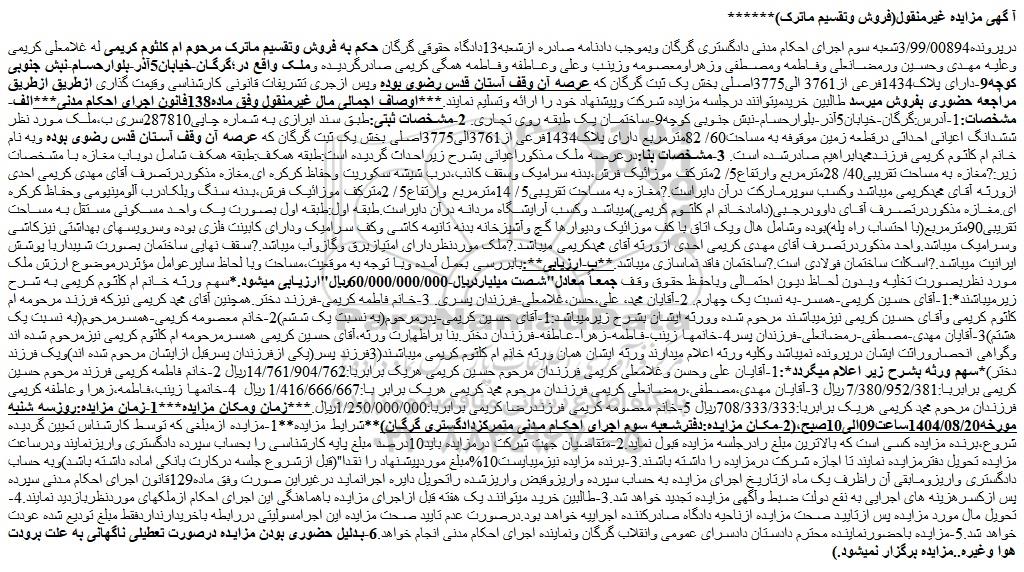 آ گهی مزایده غیرمنقول(فروش وتقسیم ماترک)******
درپرونده3/99/00894شعبه سوم اجرای احکام مدنی دادگستری گرگان وبموجب دادنامه صادره ازشعبه13دادگاه حقوقی گرگان حکم به فروش وتقسیم ماترک مرحوم ام کلثوم کریمی له غلامعلی کریمی
وعلیه مهدی وحسین ورمضانعلی وفاطمه ومصطفی وزهراومعصومه وزینب وعلی وعاطفه وفاطمه همگی کریمی صادرگردیده وملک واقع در؛گرگان-خیابان5آذر-بلوارحسام-نبش جنوبی
کوچه9-دارای پلاک1434فرعی از3761 الی3775اصلی بخش یک ثبت گرگان که عرصه آن وقف آستان قدس رضوی بوده وپس ازجری تشریفات قانونی کارشناسی وقیمت گذاری ازطریق ازطریق
مراجعه حضوری بفروش میرسد طالبین خریدمیتوانند درجلسه مزایده شرکت وپیشنهاد خود را ارائه وتسلیم نمایند.***اوصاف اجمالی مال غیرمنقول وفق ماده138قانون اجرای احکام مدنی***الف-
مشخصات:1-آدرس:گرگان-خیابان5آذر-بلوارحسام-نبش جنوبی کوچه9-ساختمان یک طبقه روی تجاری. 2-مشخصات ثبتی:طبق سند ابرازی به شماره چاپی287810سری ب،ملک مورد نظر
ششدانگ اعیانی احداثی درقطعه زمین موقوفه به مساحت60/ 82مترمربع دارای پلاک1434فرعی از3761الی3775اصلی بخش یک ثبت گرگان که عرصه آن وقف آستان قدس رضوی بوده وبه نام
خانم ام کلثوم کریمی فرزندمحمدابراهیم صادرشده است. 3-مشخصات بنا:درعرصه ملک مذکوراعیانی بشرح زیراحداث گردیده است:طبقه همکف:طبقه همکف شامل دوباب مغازه با مشخصات
زیر:?مغازه به مساحت تقریبی40/ 28مترمربع وارتفاع5/ 2مترکف موزائیک فرش،بدنه سرامیک وسقف کاذب،درب شیشه سکوریت وحفاظ کرکره ای.مغازه مذکوردرتصرف آقای مهدی کریمی احدی
ازورثه آقای محمدکریمی میباشد وکسب سوپرمارکت درآن دایراست.?مغازه به مساحت تقریبی5/ 14مترمربع وارتفاع5/ 2مترکف موزائیک فرش،بدنه سنگ وپلکادرب آلومینیومی وحفاظ کرکره
ای.مغازه مذکوردرتصرف آقای داوودرجبی(دامادخانم ام کلثوم کریمی)میباشد وکسب آرایشگاه مردانه درآن دایراست.طبقه اول:طبقه اول بصورت یک واحد مسکونی مستقل به مساحت
تقریبی90مترمربع(با احتساب راه پله)بوده وشامل هال ویک اتاق با کف موزائیک ودیوارها گچ وآشپزخانه بدنه تانیمه کاشی وکف سرامیک ودارای کابینت فلزی بوده وسرویسهای بهداشتی نیزکاشی
وسرامیک میباشد.واحد مذکوردرتصرف آقای مهدی کریمی احدی ازورثه آقای محمدکریمی میباشد.?ملک موردنظردارای امتیازبرق وگازوآب میباشد.?سقف نهایی ساختمان بصورت شیبدارباپوشش
ایرانیت میباشد.?اسکلت ساختمان فولادی است.?ساختمان فاقد نماسازی میباشد.**ب-ارزیابی**:بابررسی بعمل آمده وبا توجه به موقعیت،مساحت وبا لحاظ سایرعوامل مؤثردرموضوع ارزش ملک
مورد نظربصورت تخلیه وبدون لحاظ دیون احتمالی وباحفظ حقوق وقف جمعاً معادل"شصت میلیاردریال-60/000/000/000ریال"ارزیابی میشود.*سهم ورثه خانم ام کلثوم کریمی به شرح
زیرمیباشند*:1-آقای حسین کریمی-همسر-به نسبت یک چهارم. 2-آقایان محمد،علی،حسن،غلامعلی-فرزندان پسری. 3-خانم فاطمه کریمی-فرزند دختر.همچنین آقای محمد کریمی نیزکه فرزند مرحومه ام
کلثوم کریمی وآقای حسین کریمی نیزمیباشند مرحوم شده وورثه ایشان بشرح زیرمیباشد:1-آقای حسین کریمی-پدرمرحوم(به نسبت یک ششم)2-خانم معصومه کریمی-همسرمرحوم(به نسبت یک
هشتم)3-آقایان مهدی-مصطفی-رمضانعلی-فرزندان پسر4-خانمها زینب-فاطمه-زهرا-عاطفه-فرزندان دختر.بنا براظهارت ورثه،آقای حسین کریمی همسرمرحومه ام کلثوم کریمی نیزمرحوم شده اند
وگواهی انحصاروراثت ایشان درپرونده نمیباشد وکلیه ورثه اعلام میدارند ورثه ایشان همان ورثه خانم ام کلثوم کریمی میباشند(3فرزند پسر(یکی ازفرزندان پسرقبل ازایشان مرحوم شده اند)ویک فرزند
دختر)*سهم ورثه بشرح زیر اعلام میگردد*:1-آقایان علی وحسن وغلامعلی کریمی فرزندان مرحوم حسین کریمی هریک برابربا:14/761/904/762ریال 2-خانم فاطمه کریمی فرزند مرحوم حسین
کریمی برابربا:7/380/952/381 ریال 3-آقایان مهدی،مصطفی،رمضانعلی کریمی فرزندان مرحوم محمد کریمی هریک برابر با:1/416/666/667 ریال 4-خانمها زینب،فاطمه،زهرا وعاطفه کریمی
فرزندان مرحوم محمد کریمی هریک برابربا:708/333/333ریال 5-خانم معصومه کریمی فرزندرضا کریمی برابربا:1/250/000/000ریال.***زمان ومکان مزایده***1-زمان مزایده:روزسه شنبه
مورخه1404/08/20ساعت09الی10صبح،(2-مکان مزایده:دفترشعبه سوم اجرای احکام مدنی متمرکزدادگستری گرگان)**شرایط مزایده**1-مزایده ازمبلغی که توسط کارشناس تعیین گردیده
شروع،برنده مزایده کسی است که بالاترین مبلغ رادرجلسه مزایده قبول نماید2-متقاضیان جهت شرکت درمزایده باید10درصد مبلغ پایه کارشناسی را بحساب سپرده دادگستری واریزنمایند ودرساعت
مزایده تحویل دفترمزایده نمایند تا اجازه شرکت درمزایده را داشته باشند.3-برنده مزایده نیزمیبایست10%مبلغ موردپیشنهاد را نقداً"(قبل ازشروع جلسه درکارت بانکی اماده داشته باشد)وبه حساب
دادگستری واریزومابقی آن راظرف یک ماه ازتاریخ اجرای مزایده به حساب سپرده واریزوقبض واریزشده راتحویل دایره اجرانماید درغیراین صورت وفق ماده129قانون اجرای احکام مدنی سپرده
پس ازکسرهزینه های اجرایی به نفع دولت ضبط وآگهی مزایده تجدید خواهد شد.3-طالبین خرید میتوانند یک هفته قبل ازاجرای مزایده باهماهنگی این اجرای احکام ازملکهای موردنظربازدید نمایند.4-
تحویل مال مورد مزایده پس ازتایید صحت مزایده ازناحیه دادگاه صادرکننده اجراییه خواهد بود.درصورت عدم تایید صحت مزایده این اجرامسولیتی دررابطه باخریدارنداردفقط مبلغ تودیع شده عودت
خواهد شد.5-مزایده باحضورنماینده محترم دادستان دادسرای عمومی وانقلاب گرگان ونماینده اجرای احکام مدنی انجام خواهد.6-بدلیل حضوری بودن مزایده درصورت تعطیلی ناگهانی به علت برودت
هوا وغیره..مزایده برگزار نمیشود.)